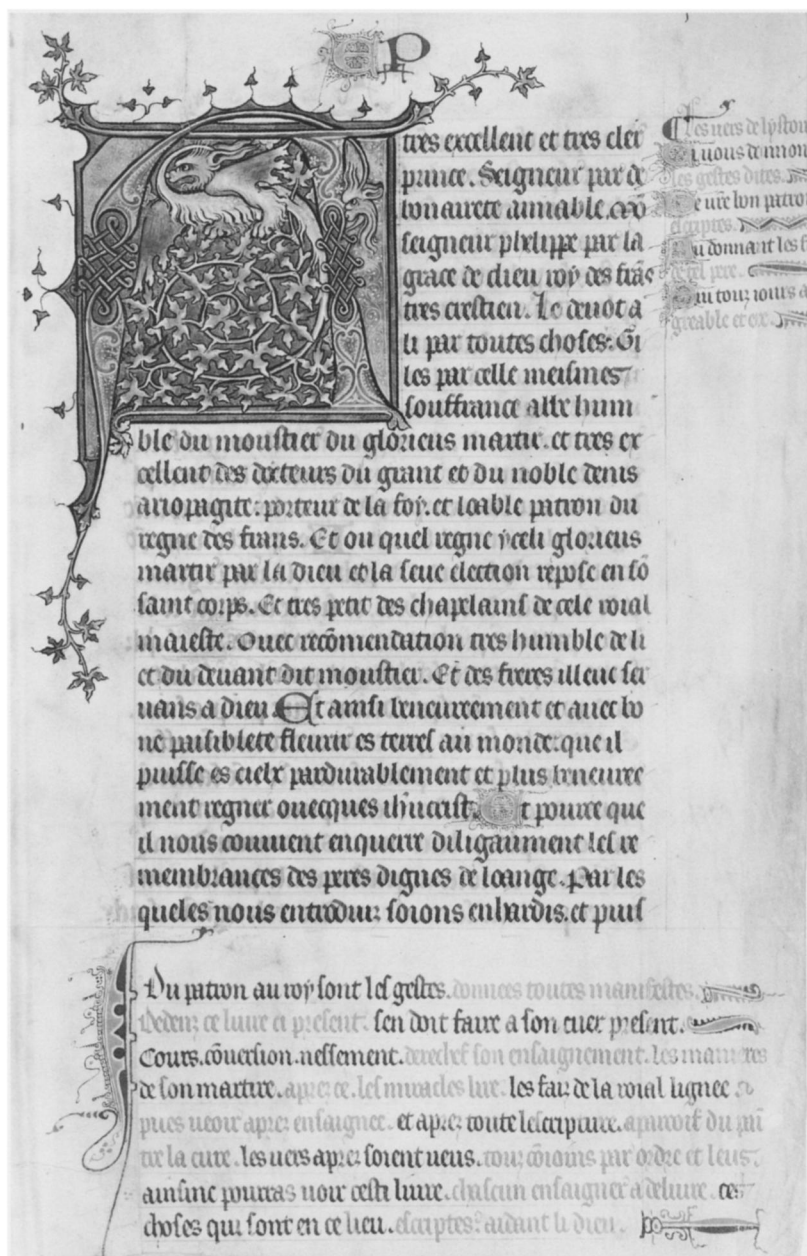 P
A
tres excellent et tres cler
prince. Seigneur par de
bonaurete amiable. Mõ
seigneur phelippe par la
grace de dieu roy des frãs
tres crestien. Le deuot a
li par toutes choses. Gi
les par celle meismes
souffrance abbe hum
ble du moustier du glorieus martir. et tres ex
cellent des docteurs du grant et du noble denis
ariopagite: porteur de la foy. et loable patron du
regne des frans. Et ou quel regne yceli glorieus
martir par la dieu et la seue election repose en sõ
saint corps. Et tres petit des chapelains de cele roial
maieste. Ouec recõmendation tres humble de li
et du deuant dit moustier. Et des freres illeuc ser
uans a dieu Et ainsi beneureement et auec bo
ne paisiblete fleurir es terres au monde: que il
puisse es cielx pardurablement et plus beneuree
ment regner ouecques ihũcrist. Et pource que
il nous couuient enquerre diligaument les re
membrances des peres dignes de loange. Par les
queles nous entroduiz soions enhardis. et puis
Les uers de lystoi
Qui uous demon
les gestes dites.
De ure bon patro
escriptes.
En donnant les f
de tel pere.
Qui touz iours a
greable et ex.
Du patron au roy sont les gestes. donnees toutes manifestes.
Dedenz ce liure ci present. sen doit faire a son cuer present.
Cours. cõuersion. nessement. derechef son ensaignement. les maniẽres
de son martire. apres ce. les miracles lire. les faiz de la roial lignee
pues ueoir apres ensaignee. et apres toute lescripture. du
tre la cure. les uers apres soient ueus. touz cõioins par ordre et leus.
ainsinc pourras uoir cesti liure. chascun ensaigner a deliure. ces
choses qui sont en ce lieu. escriptes. aidant li dieu.